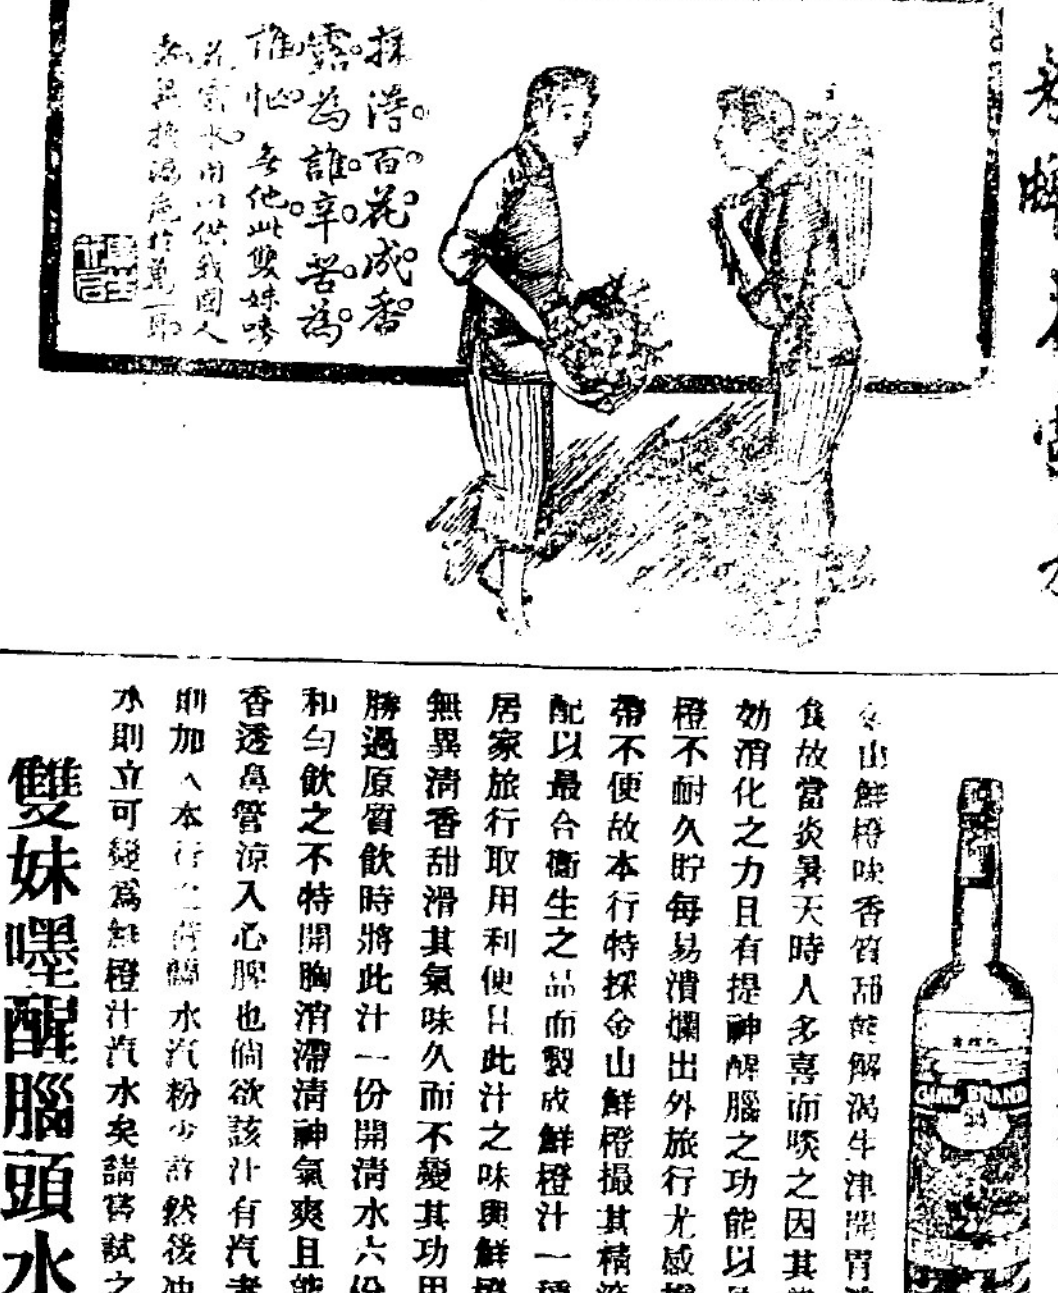 採得百花成香
露為誰辛苦為
誰忙 無他此雙妹嘜
花露水用以供我國人
金山鮮橙味香質甜能解渴生津開胃
食故當炎暑天時人多喜而啖之因其
効消化之力且有提神醒腦之功能以
橙不耐久貯每易潰爛出外旅行尤感
帶不便故本行特採金山鮮橙撮其精
配以最合衛生之品而製成鮮橙汁一種
居家旅行取用利便且此汁之味與鮮橙
無異清香甜滑其氣味久而不變其功用
勝過原質飲時將此汁一份開清水六份
和勻飲之不特開胸消滯清神氣爽且能
香透鼻管涼入心脾也倘欲該汁有汽者
則加入本行之荷蘭水汽粉少許然後沖
水則立可變為鮮橙汁汽水矣請嘗試之
雙妹嘿醒腦頭水
GIRL BRAND